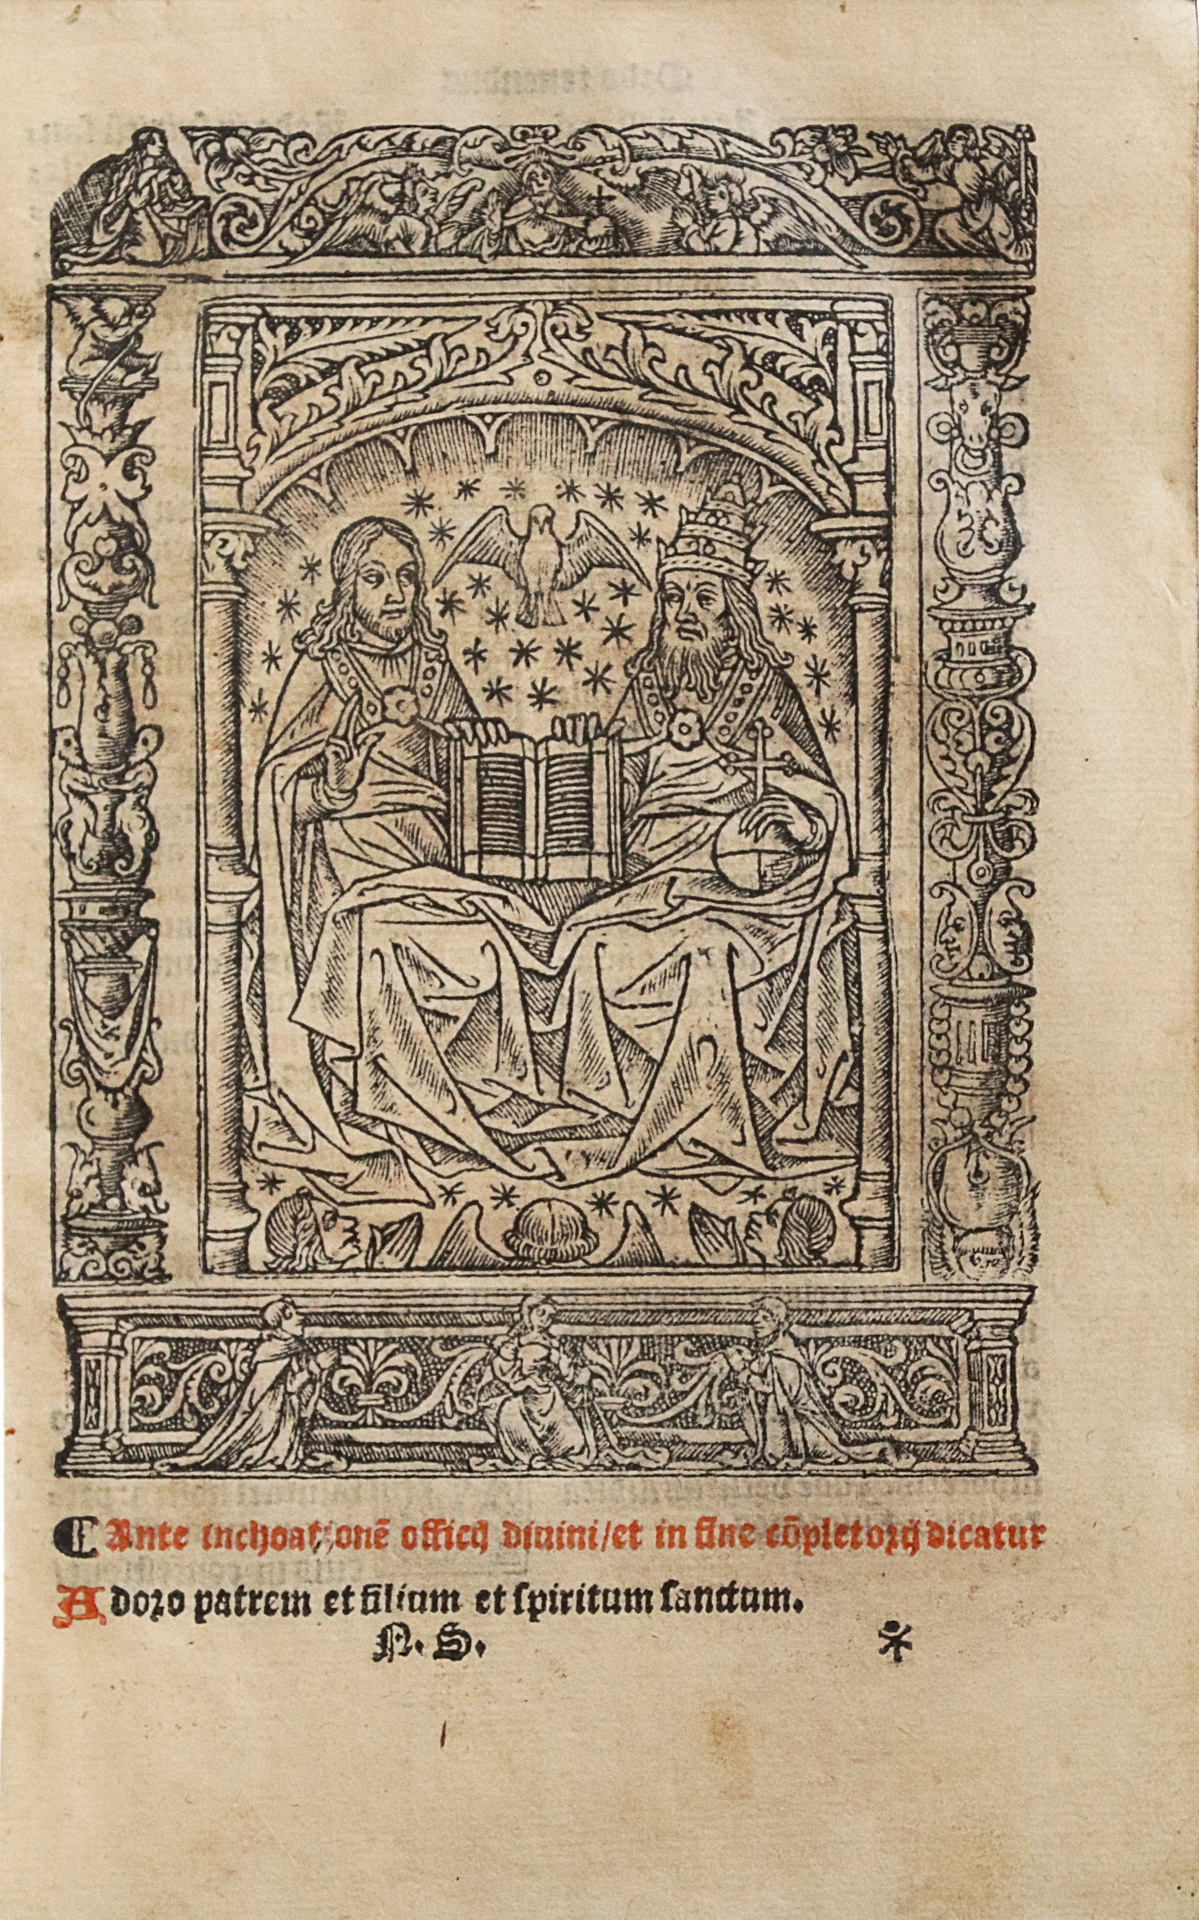 ¶ Ante inchoationē officij diuini/et in fine cōpletorij dicatur
Adoro patrem et filium et spiritum sanctum.
N. S.